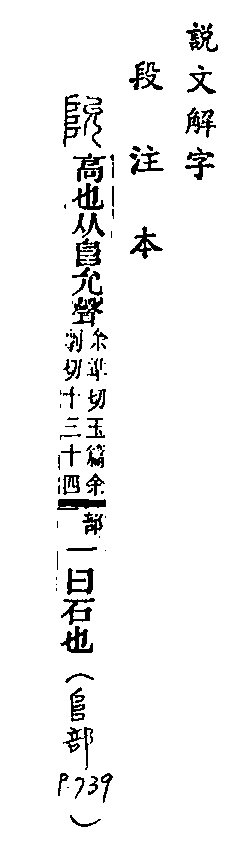 說文解字
段注本
阭高也从𨸏允聲余準切玉篇余切十三十四部一曰石也(𨸏部P.739)